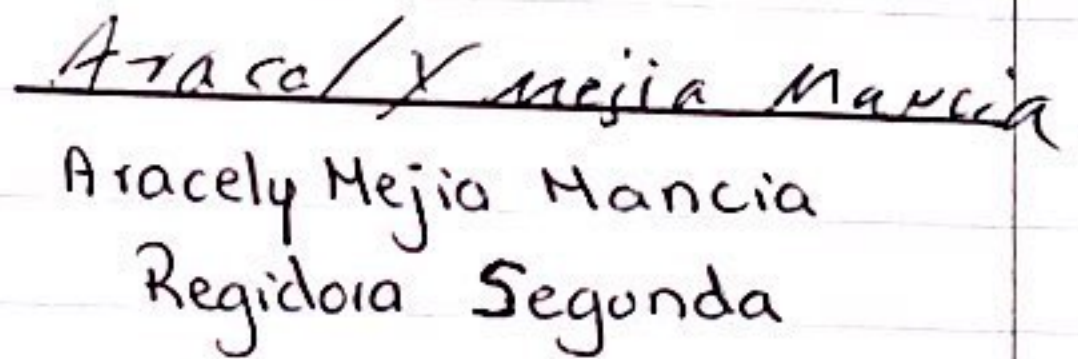 Aracely mejia Mancia
Aracely Mejia Mancia
Regidora Segunda